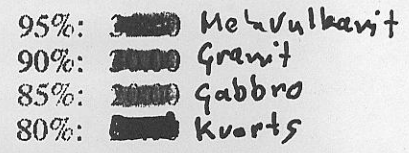 95%: Metavulkanit
90%: Granit
85%: Gabbro
80%: Kvarts